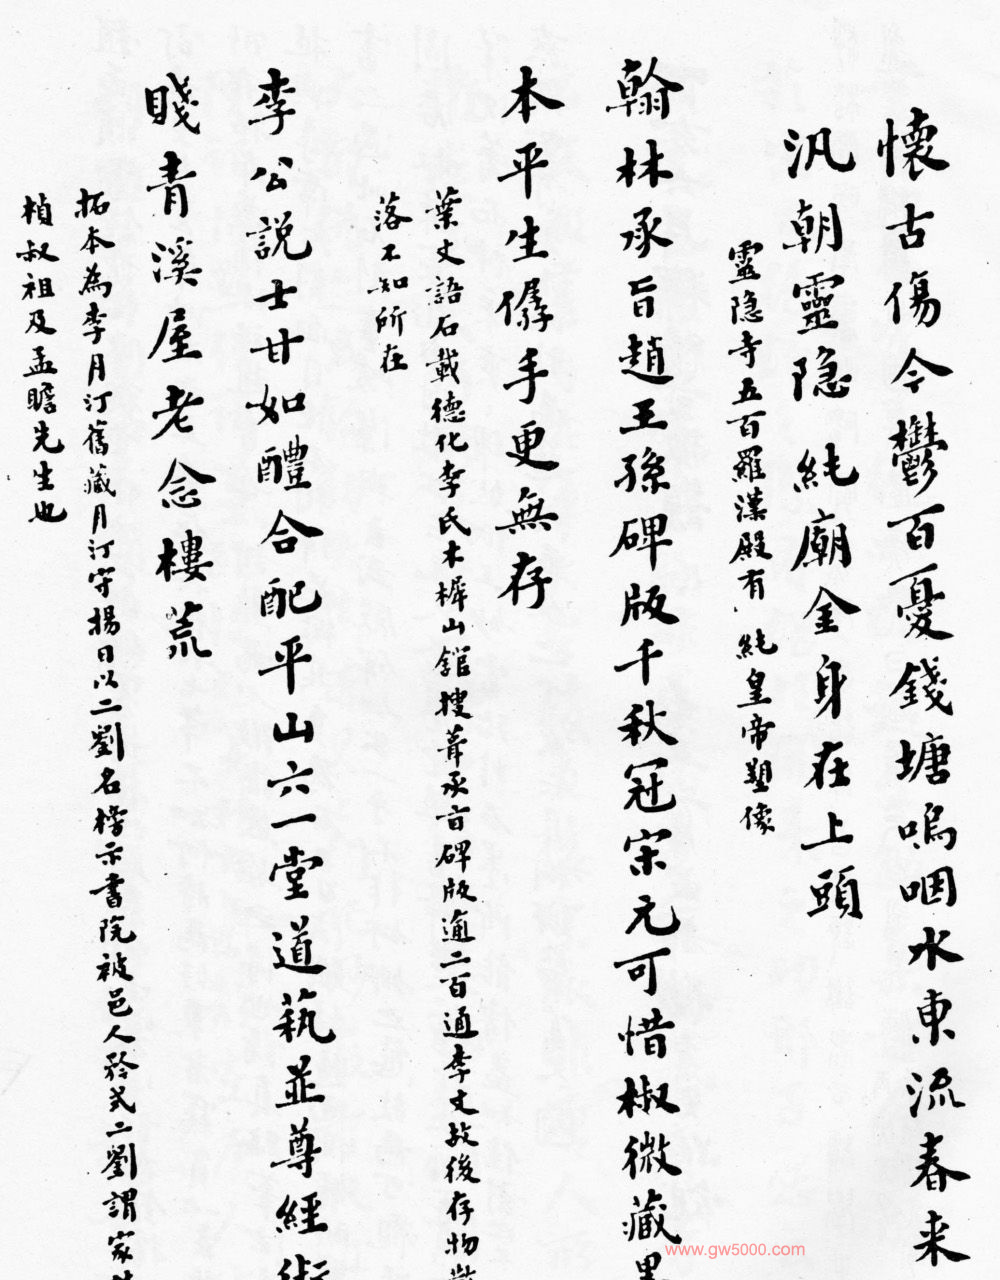 懷古傷今鬱百憂錢塘嗚咽水東流春来
汎朝靈隐純廟金身在上頭
靈隐寺五百羅漢殿有純皇帝塑像
翰林承旨趙王孫碑版千秋冠宋元可惜椒微藏
本平生儔手更無存
葉丈語石載德化李氏木樨山館搜葺承旨碑版逾二百通李丈故後存物
落不知所在
李公説士甘如醴合配平山六一堂道蓺並尊經術
賤青溪屋老念樓荒
拓本為李月汀舊藏月汀守揚日以二劉名榜示書院被邑人矜式二劉謂家
楨叔祖及孟瞻先生也
www.gw5000.com